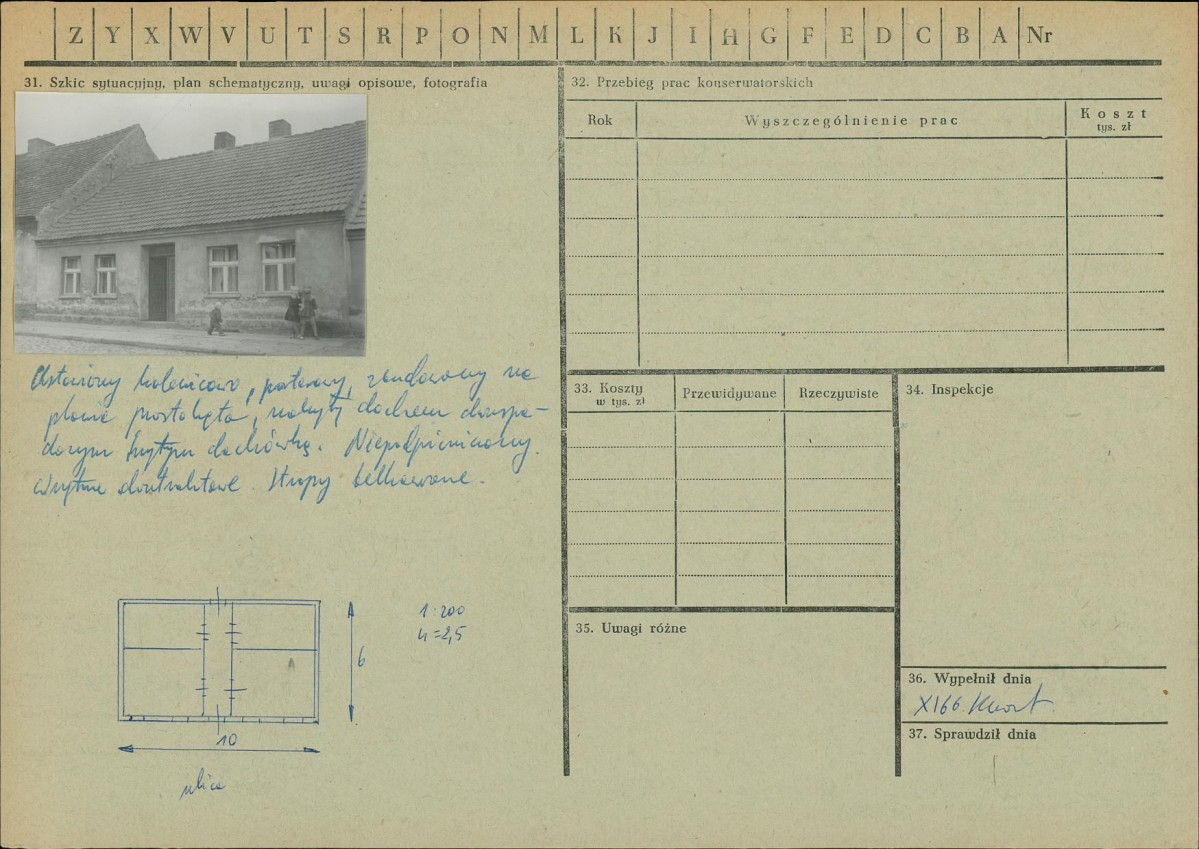 Z Y X W V U T S R P O N M L K J I H G F E D C B A Nr
31. Szkic sytuacyjny, plan schematyczny, uwagi opisowe, fotografia
Ustawiony kalenicowo, parterowy, zbudowany na
planie prostokąta, nakryty dachem dwuspa-
dowym krytym dachówką. Niepodpiwniczony.
Wnętrze dwutraktowe. Stropy belkowane.
1:200
h=2,5
6
10
ulica
32. Przebieg prac konserwatorskich
Rok
Wyszczególnienie prac
Koszt
tys. zł
33. Koszty
w tys. zł
Przewidywane
Rzeczywiste
34. Inspekcje
35. Uwagi różne
36. Wypełnił dnia
XI66
37. Sprawdził dnia